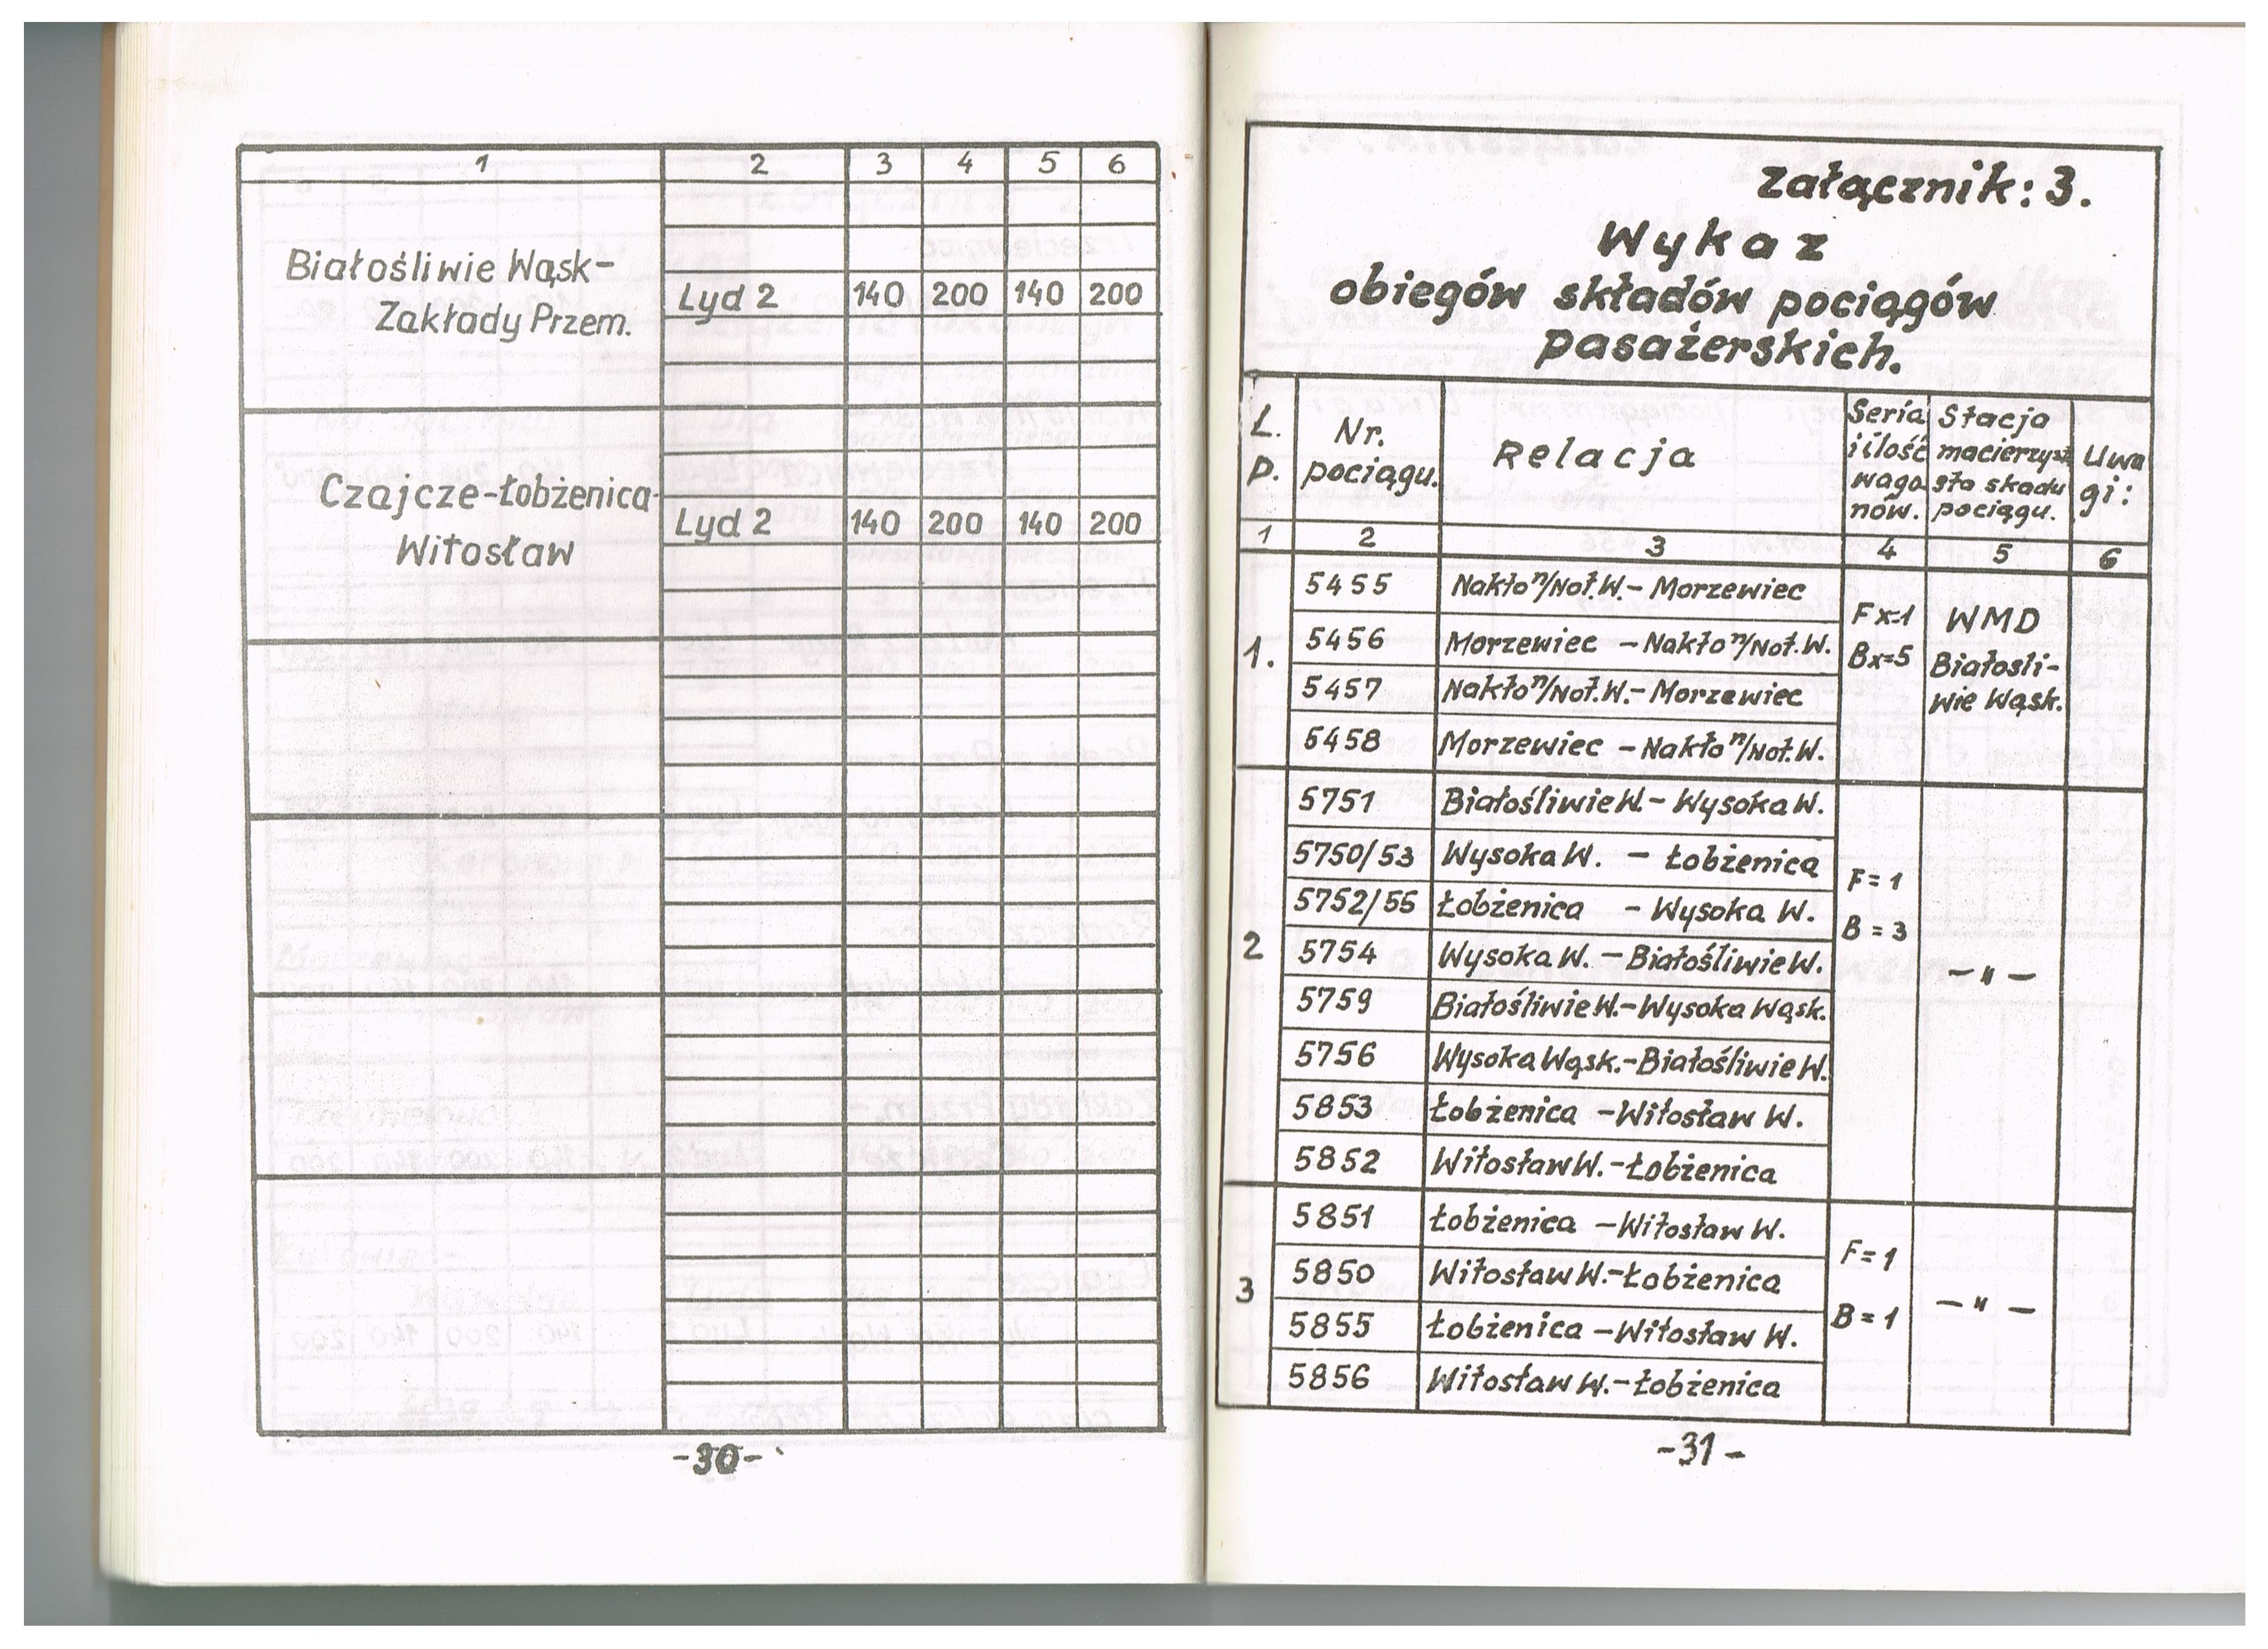 1 2 3 4 5 6
Białośliwie Wąsk-
Zakłady Przem.
Lyd 2 140 200 140 200
Czajcze-Łobżenica-
Witosław
Lyd 2 140 200 140 200
-30-
Załącznik: 3.
Wykaz
obiegów składów pociągów
pasażerskich.
Ł. p.
Nr. pociągu.
Relacja
Seria i ilość wago nów.
Stacja macierzyń sta skadu pociągu.
Uwa gi:
1 2 3 4 5 6
1.
5455 Nakło n/Not.W.- Morzewiec
5456 Morzewiec - Nakło n/Not.W.
5457 Nakło n/Not.W.- Morzewiec
5458 Morzewiec - Nakło n/Not.W.
Fx-1
Bx=5
WMD
Białośli-
wie Wąsk.
2
5751 Białośliwie W. - Wysoka W.
5750/53 Wysoka W. - Łobżenica
5752/55 Łobżenica - Wysoka W.
5754 Wysoka W. - Białośliwie W.
5759 Białośliwie W.-Wysoka Wąsk.
5756 Wysoka Wąsk.-Białośliwie W.
5853 Łobżenica -Witosław W.
5852 Witosław W.-Łobżenica
F=1
B=3
-"-
3
5851 Łobżenica -Witosław W.
5850 Witosław W.-Łobżenica
5855 Łobżenica -Witosław W.
5856 Witosław W.-Łobżenica
F=1
B=1
-"-
-31-